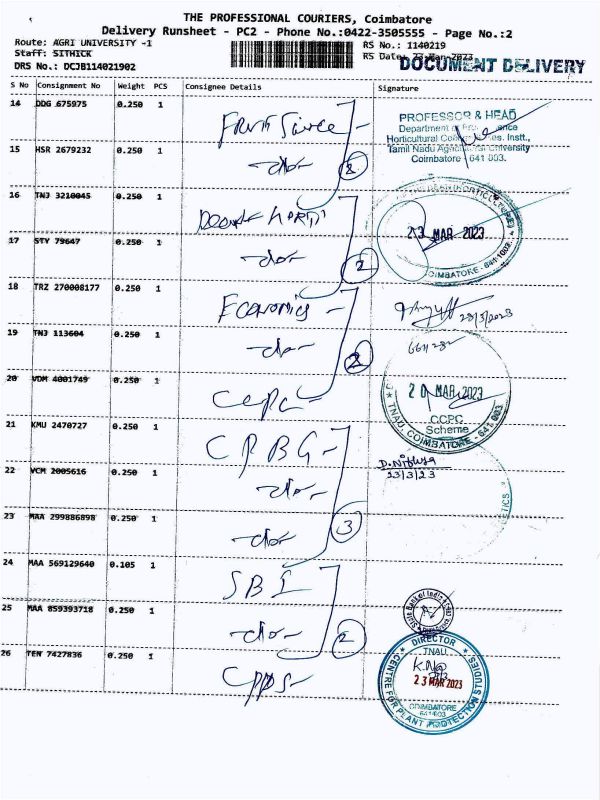 THE PROFESSIONAL COURIERS, Coimbatore
Delivery Runsheet - PC2 - Phone No.:0422-3505555 - Page No.:2
Route: AGRI UNIVERSITY -1
RS No.: 1140219
Staff: SITHICK
RS Date: 23-Mar-2023
DOCUMENT DELIVERY
DRS No.: DCJB114021902
S No Consignment No Weight PCS Consignee Details Signature
14 DDG 675975 0.250 1
PROFESSOR & HEAD
Department of
Horticultural Instt.,
Tamil Nadu University
Coimbatore - 641 003.
15 HSR 2679232 0.250 1 -do- 2
16 TNJ 3210045 0.250 1
23 MAR 2023
COIMBATORE - 641 003.
17 STY 79647 0.250 1 -do- 2
18 TRZ 270008177 0.250 1 Economics -
23/3/2023
19 TNJ 113604 0.250 1 -do- 2
20 VDM 4001749 0.250 1 CCPC -
20 MAR 2023
CCPC
Scheme
TNAU, COIMBATORE - 641 003.
21 KMU 2470727 0.250 1 CPBG -
22 VCM 2005616 0.250 1 -do-
D. Nithya
23/3/23
23 MAA 299886898 0.250 1 -do- 3
24 MAA 569129640 0.105 1 SBI
State Bank of India
25 MAA 859393718 0.250 1 -do- 2
26 TEN 7427836 0.250 1 CPPS -
DIRECTOR
TNAU
23 MAR 2023
COIMBATORE
641 003
CENTRE FOR PLANT PROTECTION STUDIES